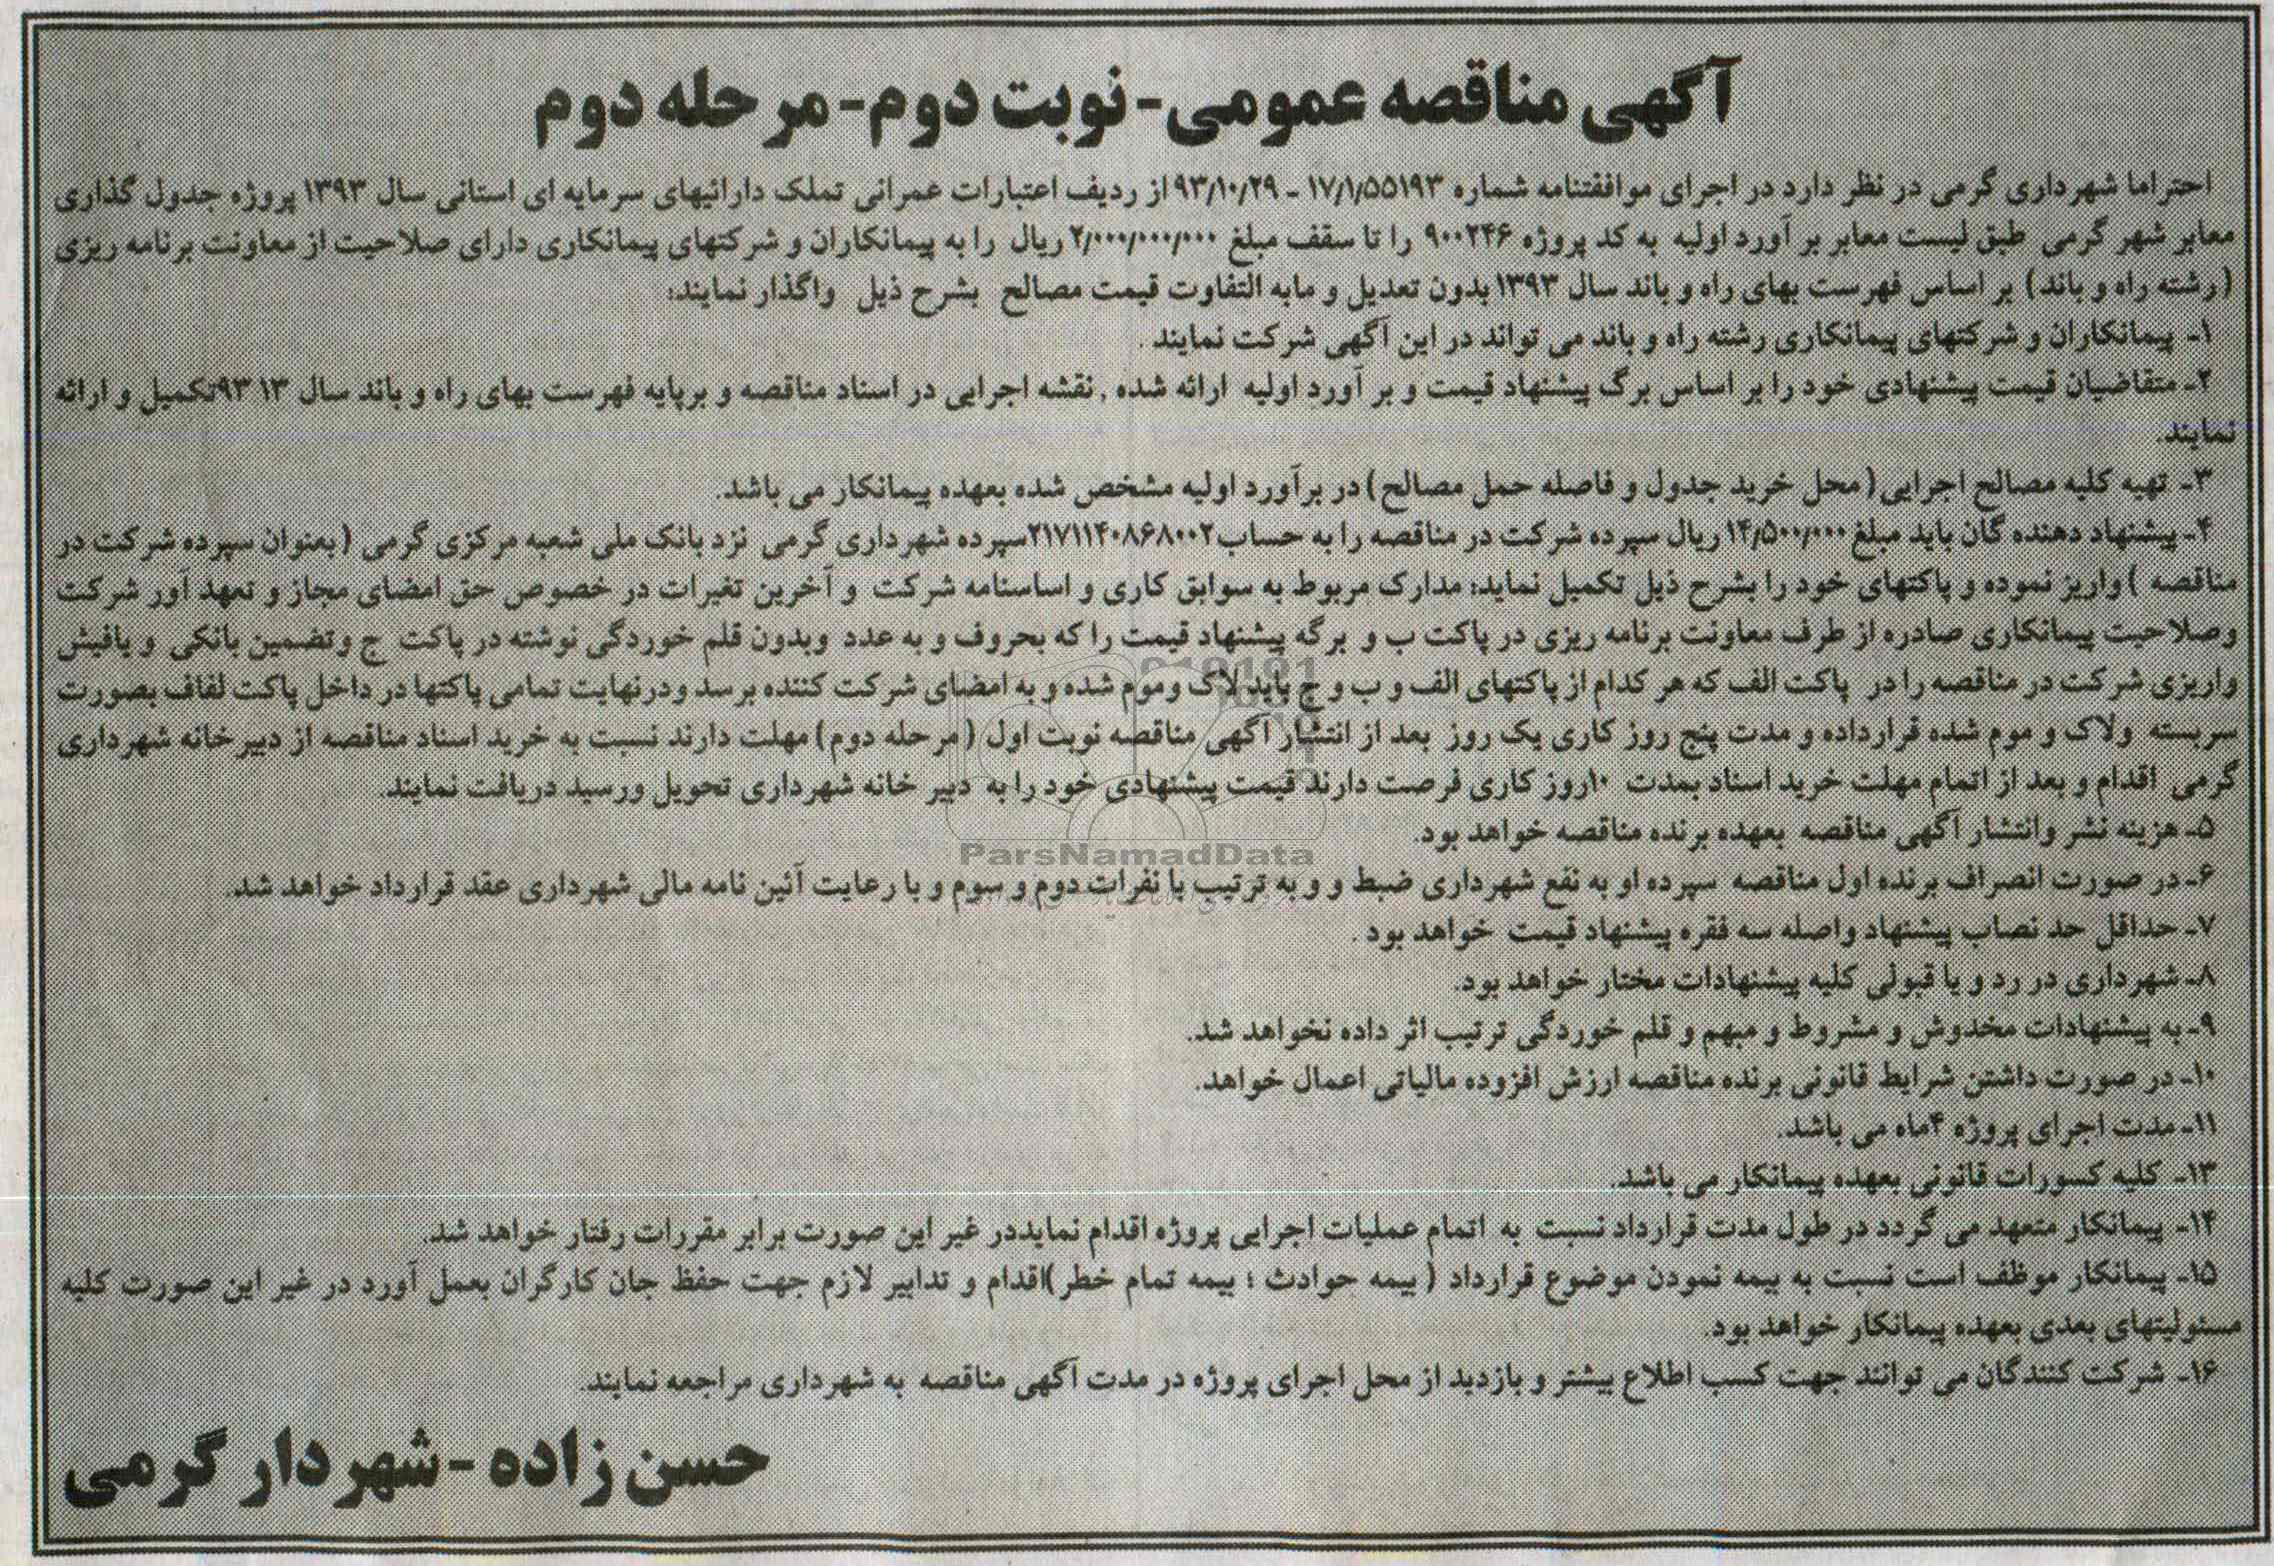 آگهی مناقصه عمومی - نوبت دوم - مرحله دوم
احتراما شهرداری گرمی در نظر دارد در اجرای موافقتنامه شماره ۱۷/۱/۵۵۱۹۳ ـ ۹۳/۱۰/۲۹ از ردیف اعتبارات عمرانی تملک دارائیهای سرمایه ای استانی سال ۱۳۹۳ پروژه جدول گذاری
معابر شهر گرمی طبق لیست معابر بر آورد اولیه به کد پروژه ۹۰۰۲۴۶ را تا سقف مبلغ ۲/۰۰۰/۰۰۰/۰۰۰ ریال را به پیمانکاران و شرکتهای پیمانکاری دارای صلاحیت از معاونت برنامه ریزی
(رشته راه و باند) بر اساس فهرست بهای راه و باند سال ۱۳۹۳ بدون تعدیل و مابه التفاوت قیمت مصالح بشرح ذیل واگذار نمایند:
۱ـ پیمانکاران و شرکتهای پیمانکاری رشته راه و باند می تواند در این آگهی شرکت نمایند .
۲ـ متقاضیان قیمت پیشنهادی خود را بر اساس برگ پیشنهاد قیمت و بر آورد اولیه ارائه شده , نقشه اجرایی در اسناد مناقصه و برپایه فهرست بهای راه و باند سال ۱۳ ۹۳تکمیل و ارائه
نمایند.
۳ـ تهیه کلیه مصالح اجرایی (محل خرید جدول و فاصله حمل مصالح) در برآورد اولیه مشخص شده بعهده پیمانکار می باشد.
۴ـ پیشنهاد دهنده گان باید مبلغ ۱۴/۵۰۰/۰۰۰ ریال سپرده شرکت در مناقصه را به حساب ۲۱۷۱۱۴۰۸۶۸۰۰۲سپرده شهرداری گرمی نزد بانک ملی شعبه مرکزی گرمی (بعنوان سپرده شرکت در
مناقصه ) واریز نموده و پاکتهای خود را بشرح ذیل تکمیل نماید: مدارک مربوط به سوابق کاری و اساسنامه شرکت و آخرین تغیرات در خصوص حق امضای مجاز و تعهد آور شرکت
وصلاحیت پیمانکاری صادره از طرف معاونت برنامه ریزی در پاکت ب و برگه پیشنهاد قیمت را که بحروف و به عدد وبدون قلم خوردگی نوشته در پاکت ج وتضمین بانکی و یافیش
واریزی شرکت در مناقصه را در پاکت الف که هر کدام از پاکتهای الف و ب و ج باید لاک وموم شده و به امضای شرکت کننده برسد ودرنهایت تمامی پاکتها در داخل پاکت لفاف بصورت
سربسته ولاک و موم شده قرارداده و مدت پنج روز کاری یک روز بعد از انتشار آگهی مناقصه نوبت اول (مرحله دوم) مهلت دارند نسبت به خرید اسناد مناقصه از دبیرخانه شهرداری
گرمی اقدام و بعد از اتمام مهلت خرید اسناد بمدت ۱۰روز کاری فرصت دارند قیمت پیشنهادی خود را به دبیر خانه شهرداری تحویل ورسید دریافت نمایند.
۵ـ هزینه نشر وانتشار آگهی مناقصه بعهده برنده مناقصه خواهد بود.
ParsNamadData
۶ـ در صورت انصراف برنده اول مناقصه سپرده او به نفع شهرداری ضبط و و به ترتیب با نفرات دوم و سوم و با رعایت آئین نامه مالی شهرداری عقد قرارداد خواهد شد.
۷ـ حداقل حد نصاب پیشنهاد واصله سه فقره پیشنهاد قیمت خواهد بود .
۸ـ شهرداری در رد و یا قبولی کلیه پیشنهادات مختار خواهد بود.
۹ـ به پیشنهادات مخدوش و مشروط و مبهم و قلم خوردگی ترتیب اثر داده نخواهد شد.
۱۰ـ در صورت داشتن شرایط قانونی برنده مناقصه ارزش افزوده مالیاتی اعمال خواهد.
۱۱ـ مدت اجرای پروژه ۴ماه می باشد.
۱۳ـ کلیه کسورات قانونی بعهده پیمانکار می باشد.
۱۴ـ پیمانکار متعهد می گردد در طول مدت قرارداد نسبت به اتمام عملیات اجرایی پروژه اقدام نمایددر غیر این صورت برابر مقررات رفتار خواهد شد.
۱۵ـ پیمانکار موظف است نسبت به بیمه نمودن موضوع قرارداد (بیمه حوادث ؛ بیمه تمام خطر)اقدام و تدابیر لازم جهت حفظ جان کارگران بعمل آورد در غیر این صورت کلیه
مسئولیتهای بعدی بعهده پیمانکار خواهد بود.
۱۶ـ شرکت کنندگان می توانند جهت کسب اطلاع بیشتر و بازدید از محل اجرای پروژه در مدت آگهی مناقصه به شهرداری مراجعه نمایند.
حسن زاده - شهردار گرمی